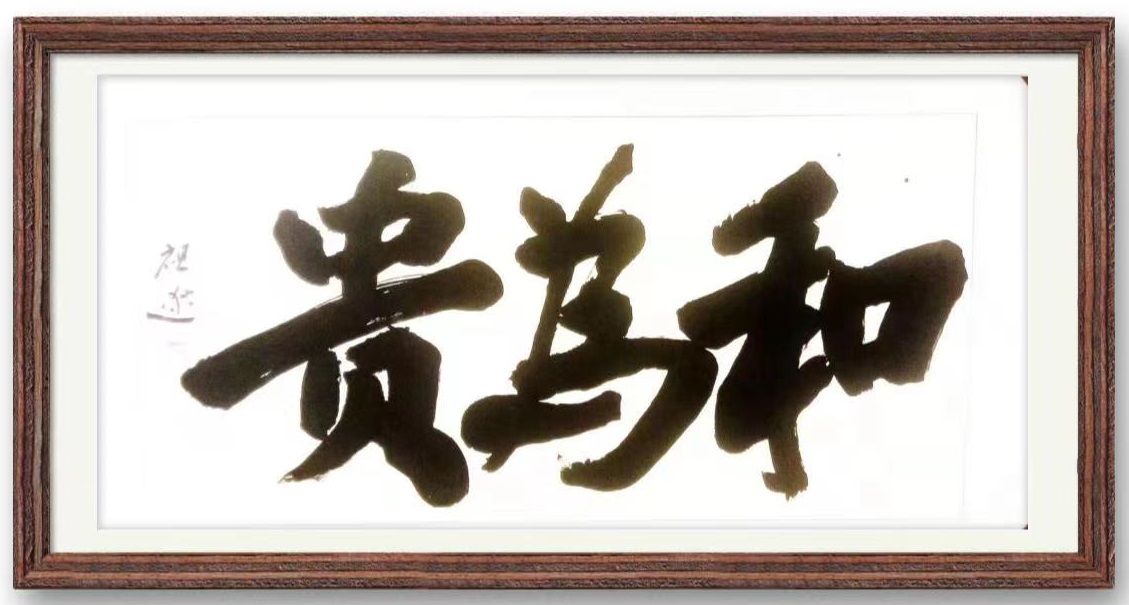 和為貴